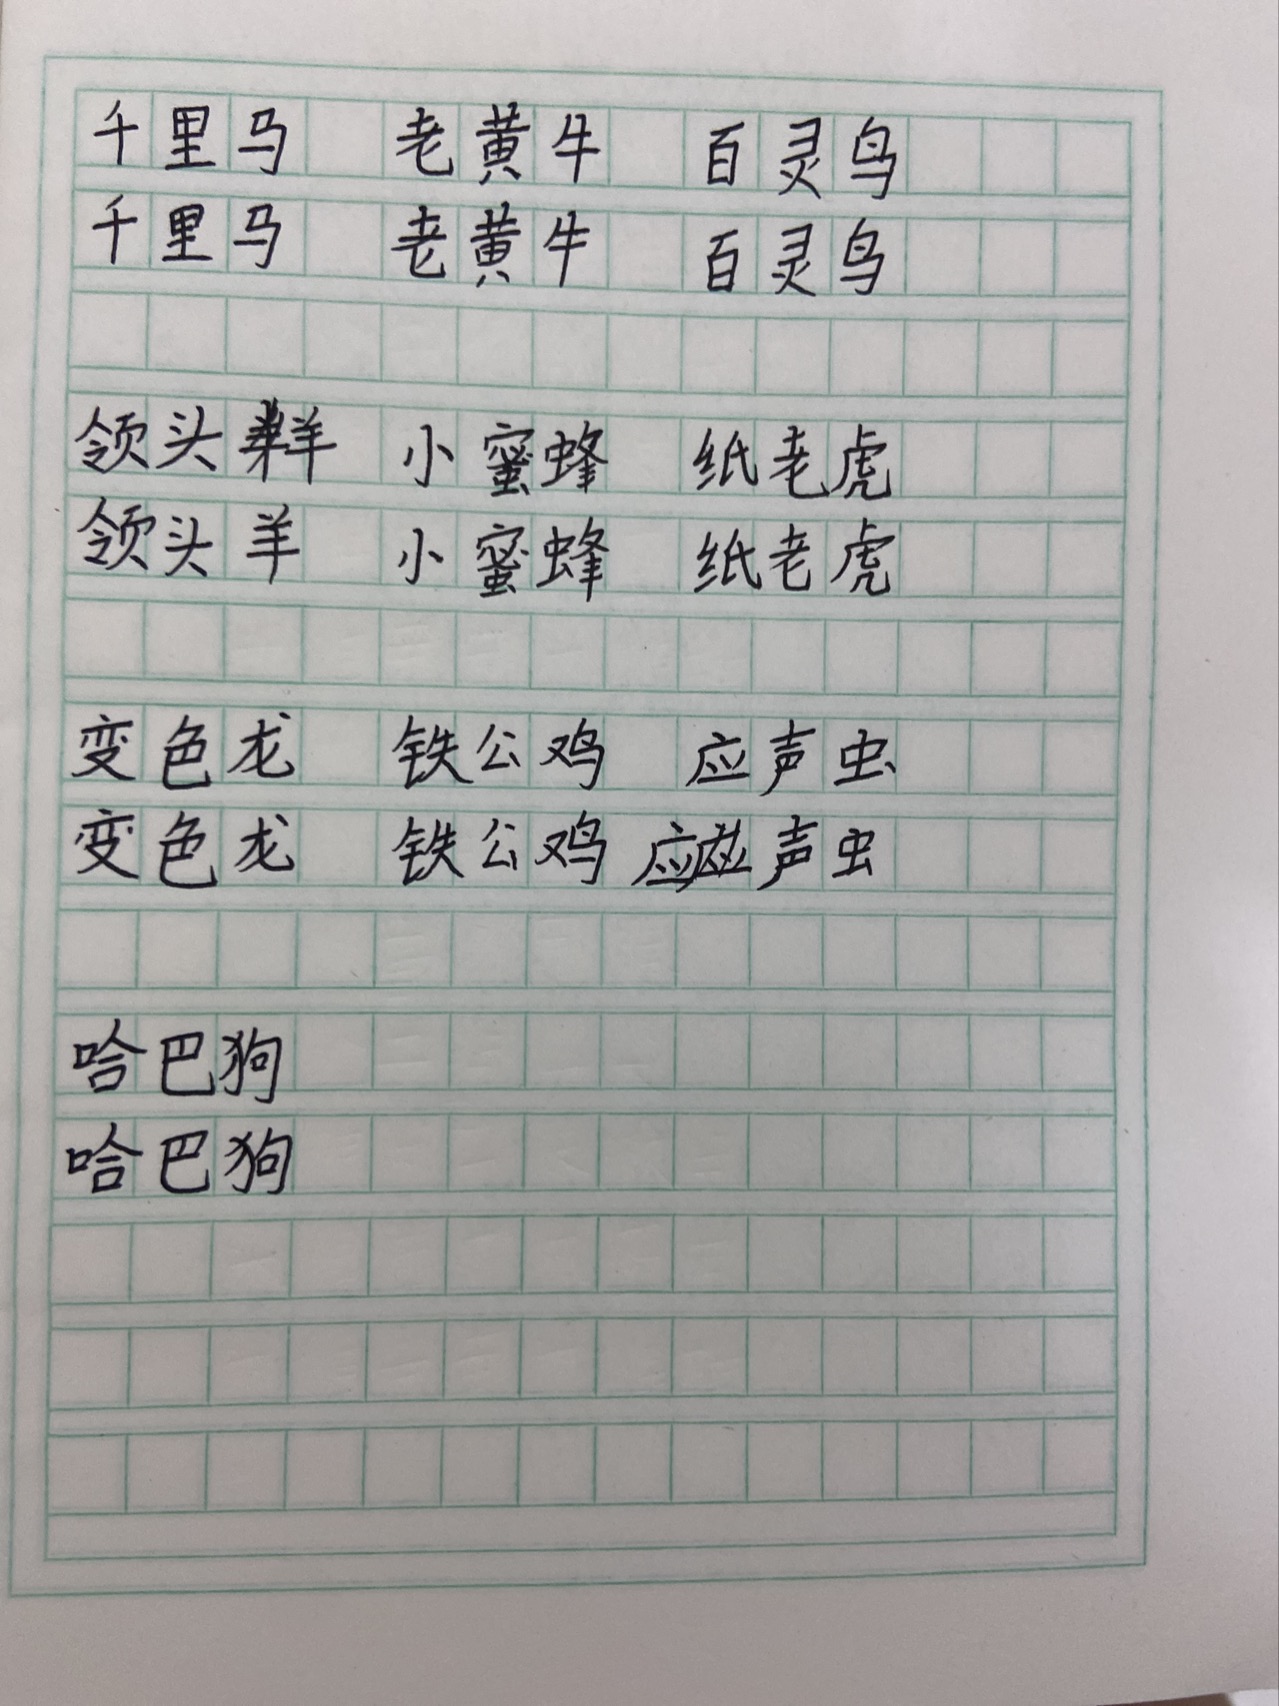 千里马 老黄牛 百灵鸟
千里马 老黄牛 百灵鸟
领头羊 小蜜蜂 纸老虎
领头羊 小蜜蜂 纸老虎
变色龙 铁公鸡 应声虫
变色龙 铁公鸡 应声虫
哈巴狗
哈巴狗